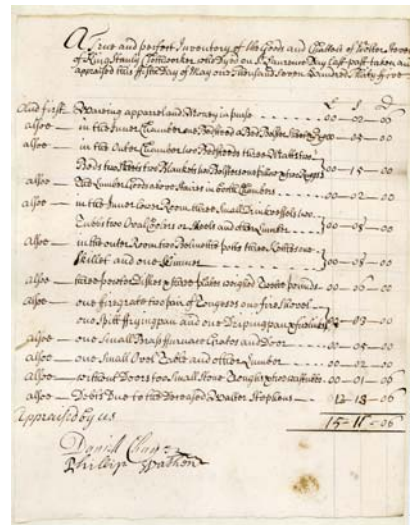 A True and perfect Inventory of the Goods and Chattels of Walter Steven
of Kings Stanly Clothworker who Dyed on St Laurence Day last past taken and
appraised this fifth Day of May one thousand Seven hundred
£ s d
And first Wearing apparel and Money in purse 00-02-06
allsoe in the Inner Chamber one Bedstead a Bed Bolster 00-05-00
allsoe in the Outer Chamber two Bedsteeds three Matts two
Beds two Sheets two Blankets two Bolsters one pillow & two Ruggs 00-15-00
allsoe The Lumber Goods above Staires in both Chambers 00-02-00
allsoe in the Inner Lower Room three Small Drink vessels two
Tubbs two Oval Coolers or Skeels and other Lumber 00-08-00
allsoe in the outer Room two Belmettle potts three Kettles one
Skillet and one Skimmer 00-08-00
allsoe three pewter Dishes & three plates weighed pounds 00-06-00
allsoe one firegrate two pair of Tongeses one fire Shovel
one Spitt fryingpan and one Dripingpan 03-00
allsoe one Small Brass furnace Grates and Door 00-05-00
allsoe one Small Ovel Table and other Lumber 00-02-00
allsoe without Doors two Small Stone Troughs & two 00-01-06
allsoe Debts Due to the Deceased Walter Stephens 12-18-06
Appraised by us 15-11-06
Daniell
Phillip Wathen